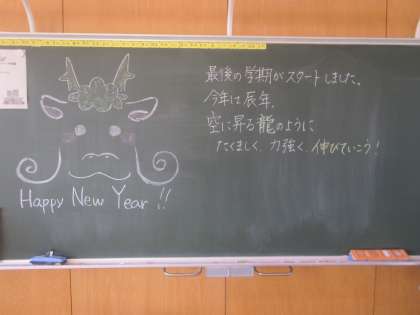 最後の学期がスタートしました。
今年は辰年。
空に昇る龍のように
たくましく、力強く、伸びていこう！
Happy New Year !!